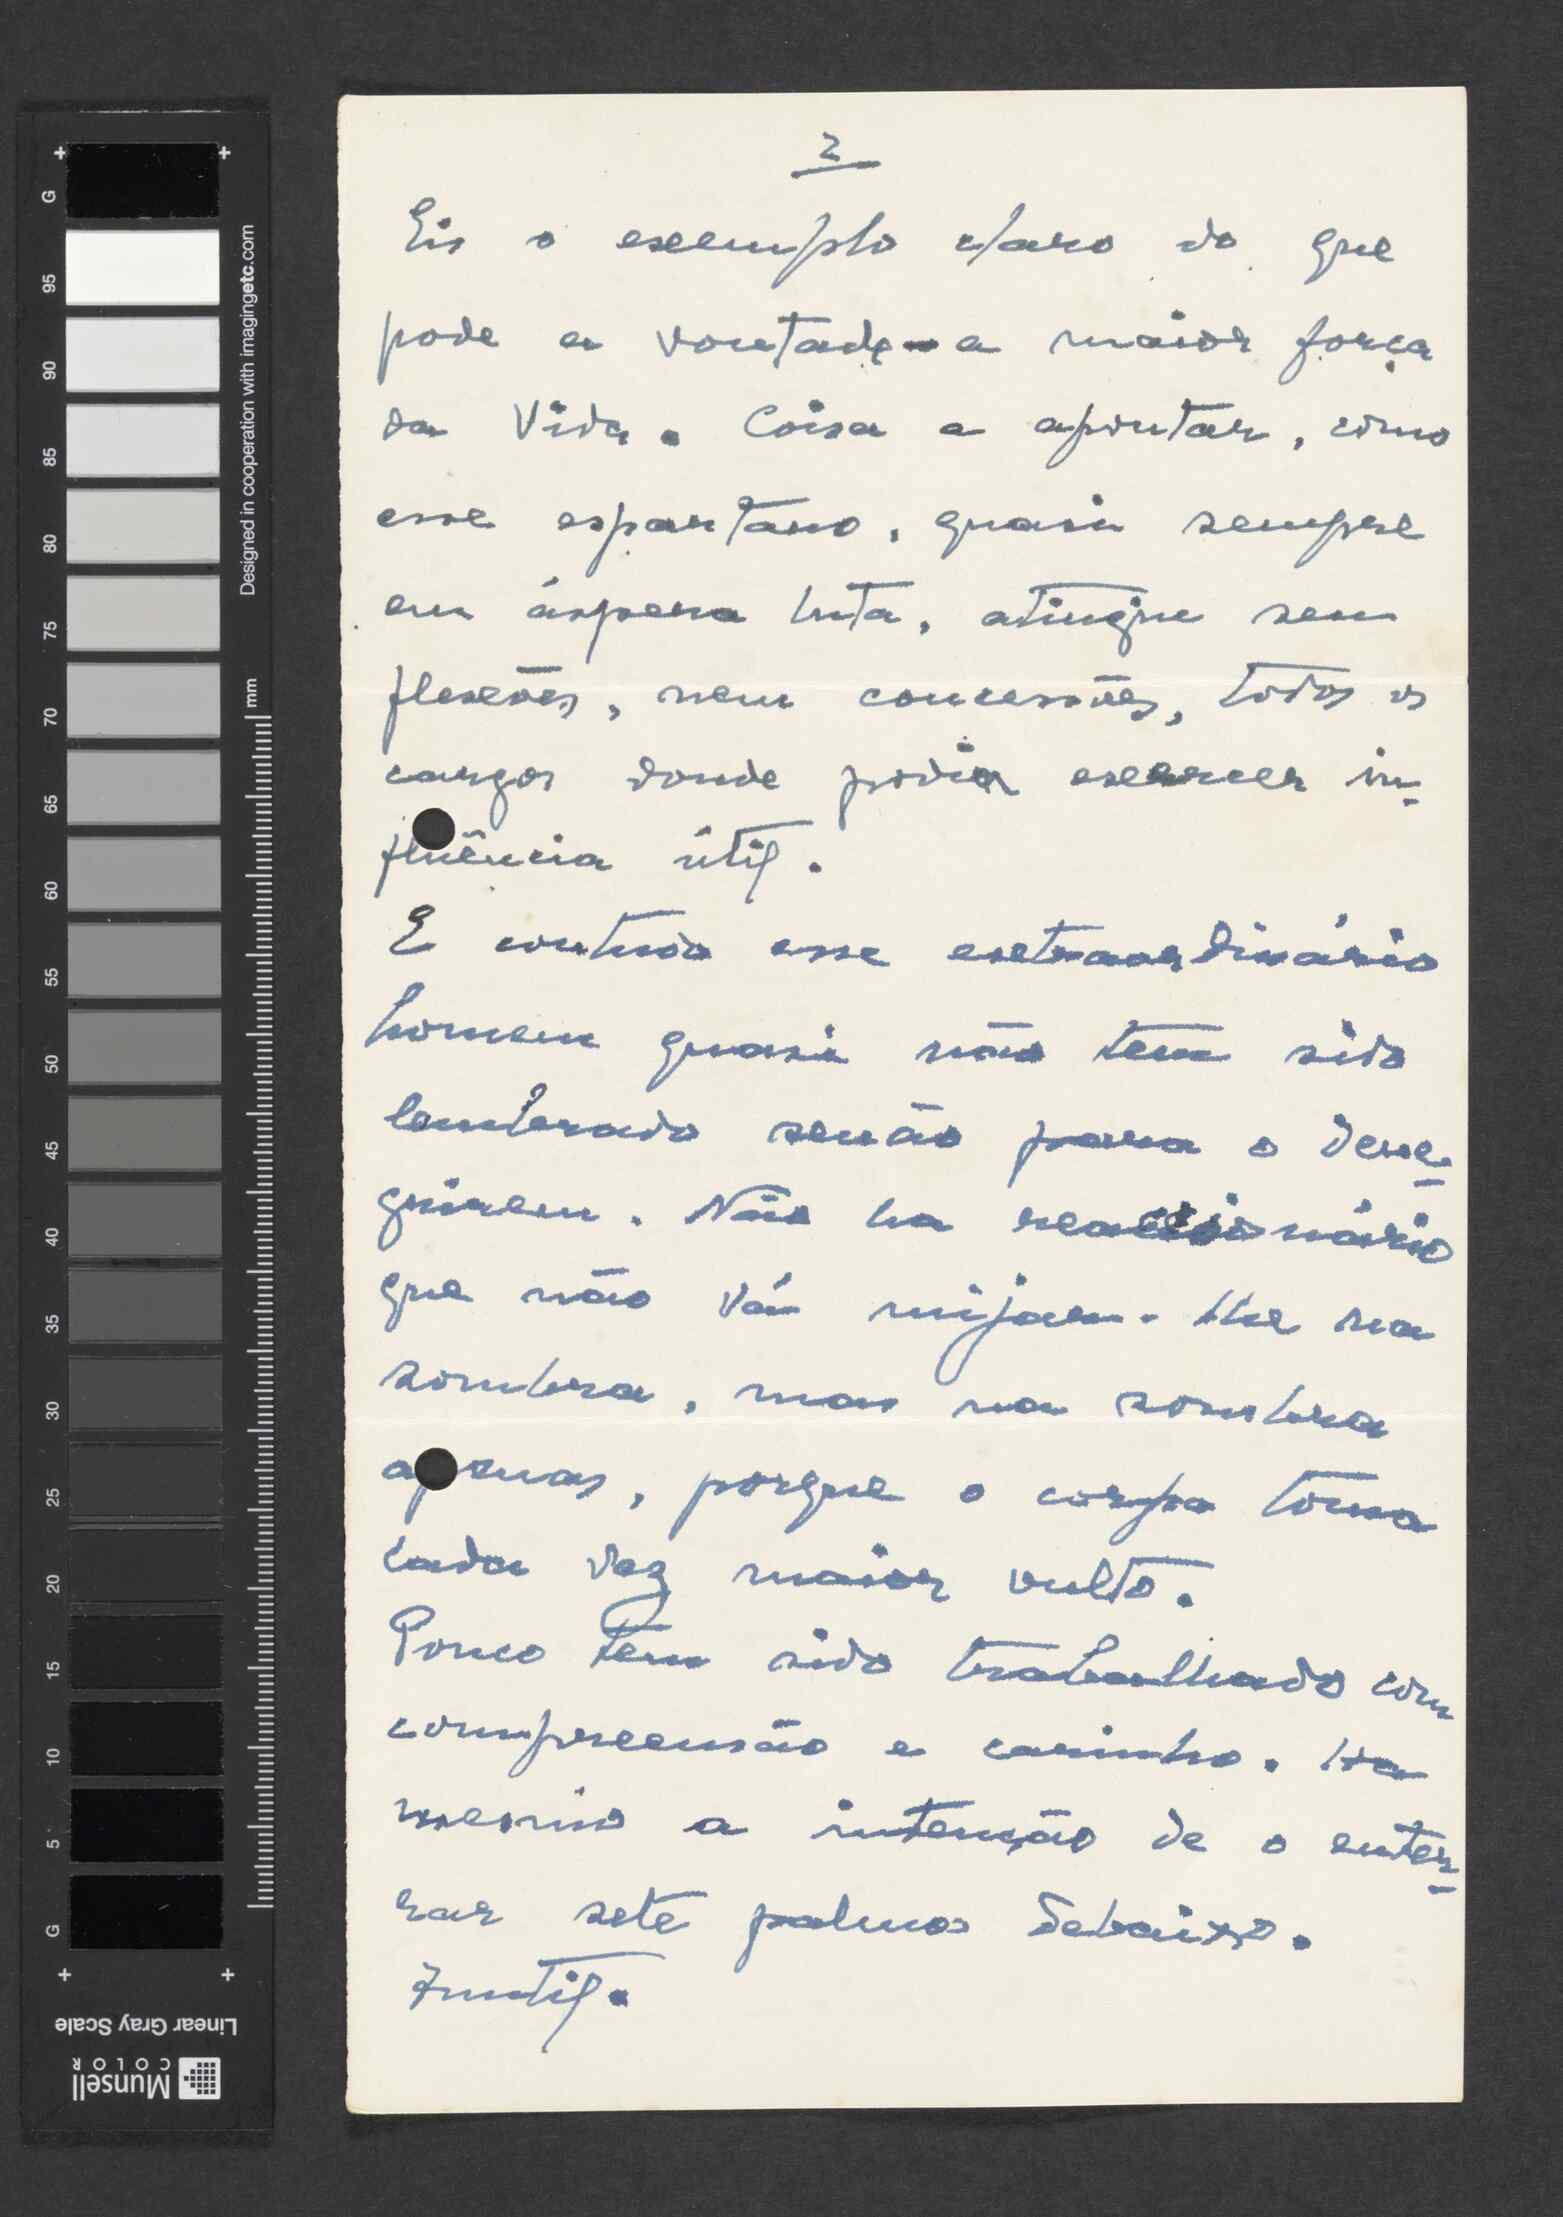 2
Eis o exemplo claro do que
pode a vontade - a maior força
da Vida. Coisa a apontar, como
esse espartano, quasi sempre
em áspera luta, atingiu sem
flexões, nem concessões, todos os
cargos donde podia exercer in-
fluência útil.
E contudo esse extraordinário
homem quasi não tem sido
lembrado senão para o dene-
grirem. Não ha reaccionário
que não vá mijar-lhe na
sombra, mas na sombra
apenas, porque o corpo toma
cada vez maior vulto.
Pouco tem sido trabalhado com
compreensão e carinho. Ha
mesmo a intenção de o enter-
rar sete palmos debaixo.
Inutil.
G
95
90
85
80
75
70
65
60
55
50
45
40
35
30
25
20
15
10
5
G
mm
Designed in cooperation with imagingetc.com
Linear Gray Scale
Munsell
COLOR